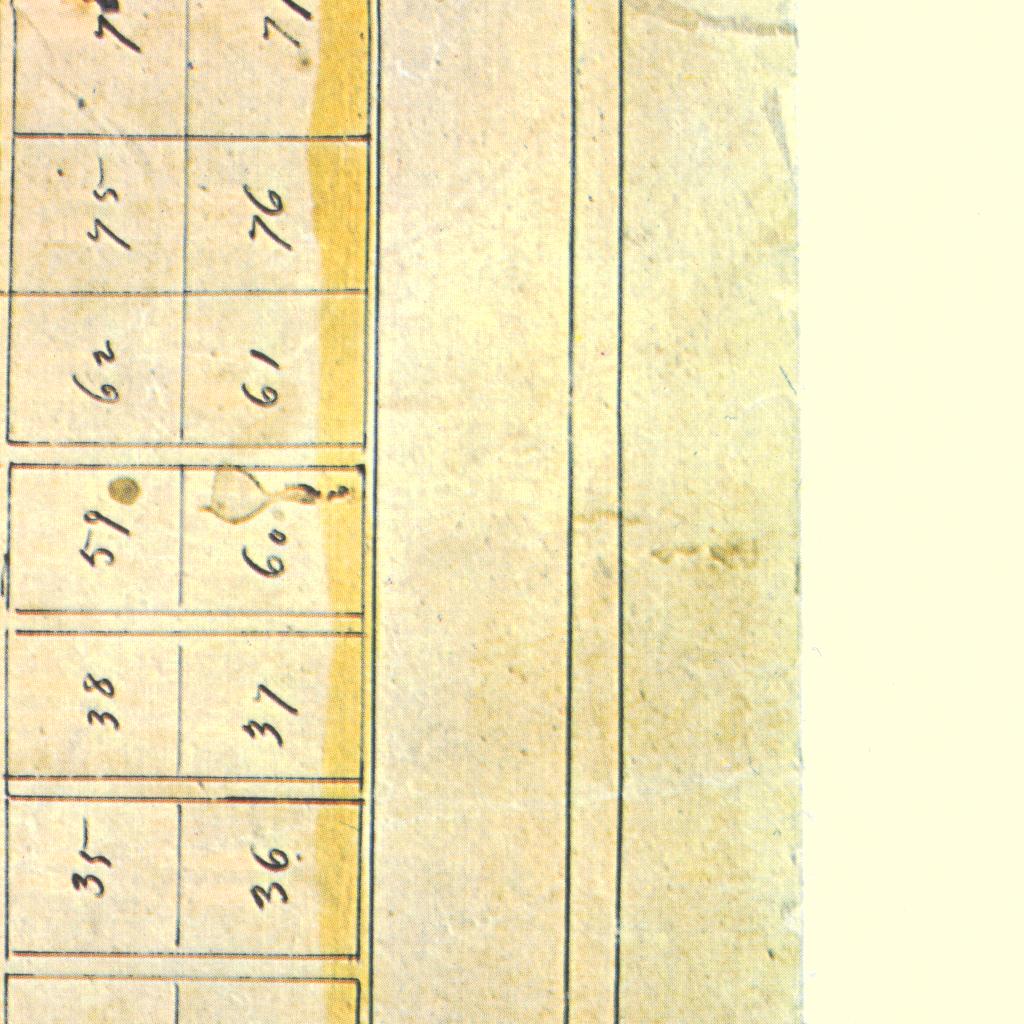 75
76
62
61
59
60
38
37
35
36